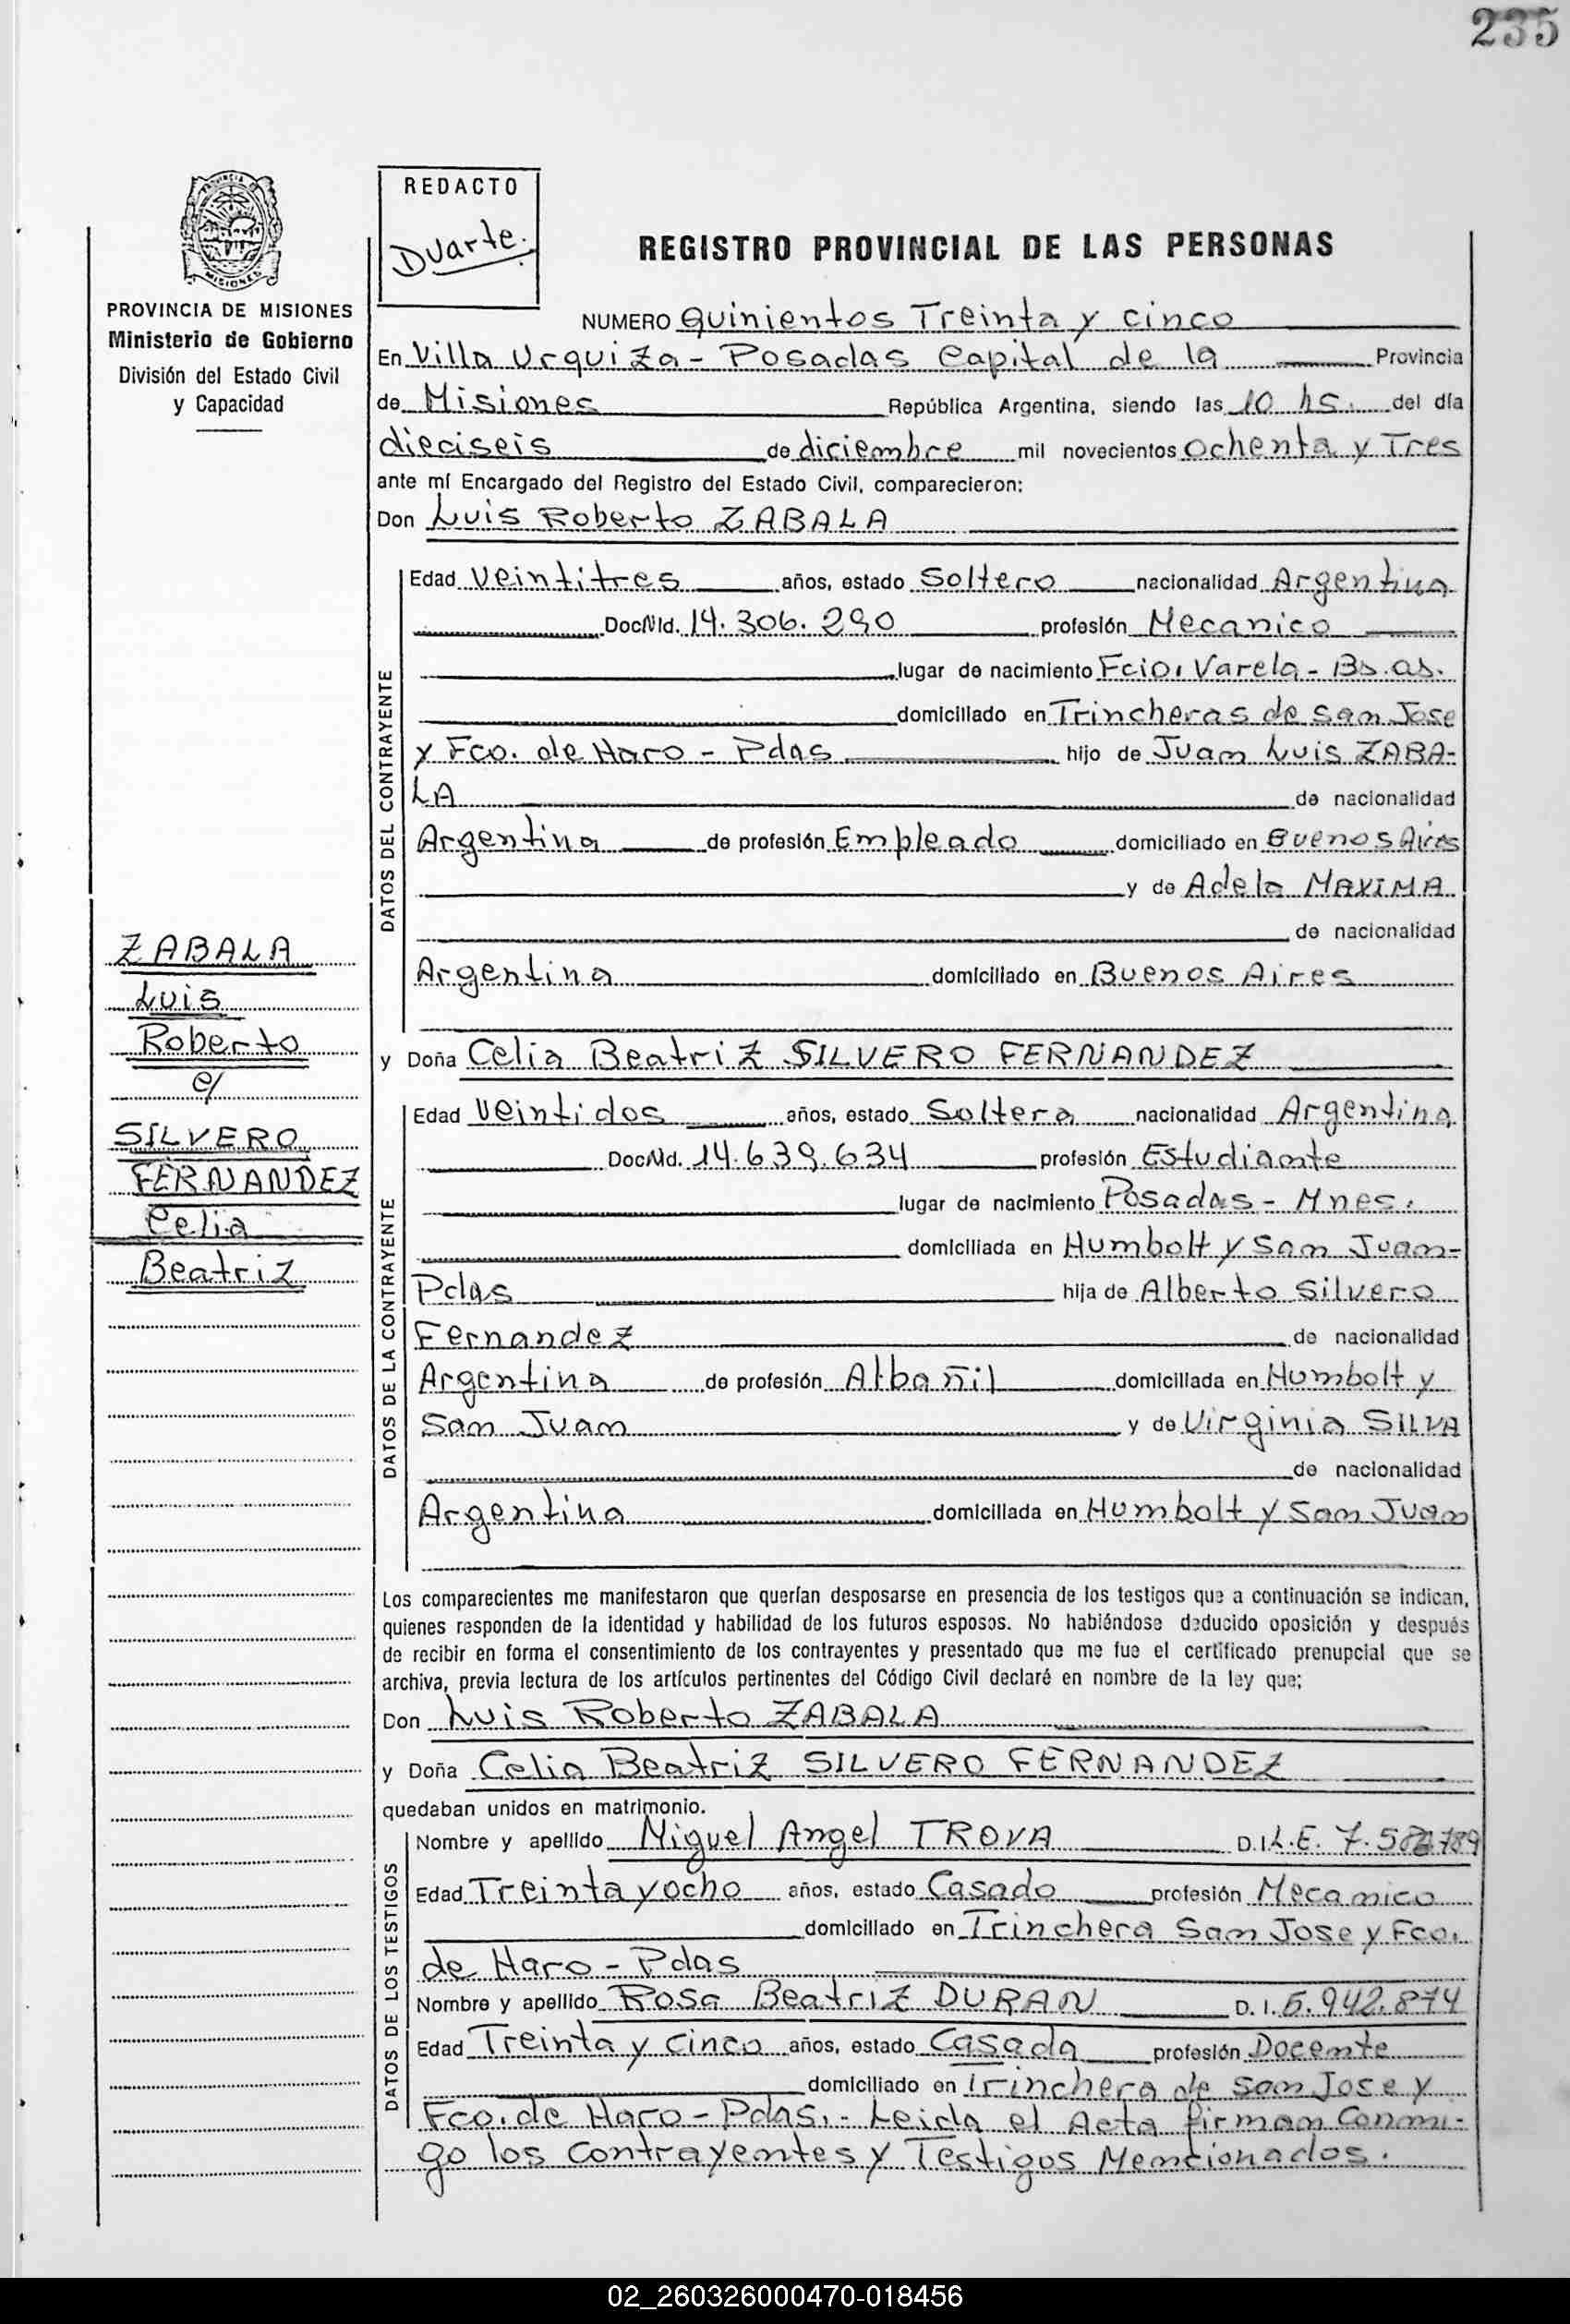 235
REDACTO
Duarte.
PROVINCIA DE MISIONES
Ministerio de Gobierno
División del Estado Civil
y Capacidad
REGISTRO PROVINCIAL DE LAS PERSONAS
NUMERO quinientos Treinta y cinco
En Villa Urquiza - Posadas Capital de la Provincia
de Misiones República Argentina, siendo las 10 hs. del día
dieciseis de diciembre mil novecientos ochenta y Tres
ante mí Encargado del Registro del Estado Civil, comparecieron:
Don Luis Roberto ZABALA
DATOS DEL CONTRAYENTE
Edad Veintitres años, estado Soltero nacionalidad Argentina
Doc. Nac. Id. 14.306.290 profesión Mecanico
lugar de nacimiento Fcio. Varela - Bs. as.
domiciliado en Trincheras de San Jose
y Fco. de Haro - Pdas hijo de Juan Luis ZABA-
LA de nacionalidad
Argentina de profesión Empleado domiciliado en Buenos Aires
y de Adela MAXIMA
de nacionalidad
Argentina domiciliado en Buenos Aires
ZABALA
Luis
Roberto
c/
SILVERO
FERNANDEZ
Celia
Beatriz
y Doña Celia Beatriz SILVERO FERNANDEZ
DATOS DE LA CONTRAYENTE
Edad Veintidos años, estado Soltera nacionalidad Argentina
14.639.634 profesión Estudiante
lugar de nacimiento Posadas - Mnes.
domiciliada en Humbolt y San Juan-
Pdas hija de Alberto Silvero
Fernandez de nacionalidad
Argentina de profesión Albañil domiciliada en Humbolt y
San Juan y de Virginia SILVA
de nacionalidad
Argentina domiciliada en Humbolt y San Juan
Los comparecientes me manifestaron que querían desposarse en presencia de los testigos que a continuación se indican,
quienes responden de la identidad y habilidad de los futuros esposos. No habiéndose deducido oposición y después
de recibir en forma el consentimiento de los contrayentes y presentado que me fue el certificado prenupcial que se
archiva, previa lectura de los artículos pertinentes del Código Civil declaré en nombre de la ley que;
Don Luis Roberto ZABALA
y Doña Celia Beatriz SILVERO FERNANDEZ
quedaban unidos en matrimonio.
DATOS DE LOS TESTIGOS
Nombre y apellido Miguel Angel TROVA D.I.L.E.
Edad Treinta y ocho años, estado Casado profesión Mecanico
domiciliado en Trinchera San Jose y Fco.
de Haro - Pdas
Nombre y apellido Rosa Beatriz DURAN D.I. 5.942.874
Edad Treinta y cinco años, estado Casada profesión Docente
domiciliado en Trinchera de San Jose y
Fco. de Haro - Pdas. - Leida el Acta firman Conmi-
go los contrayentes y Testigos Mencionados.
02_260326000470-018456